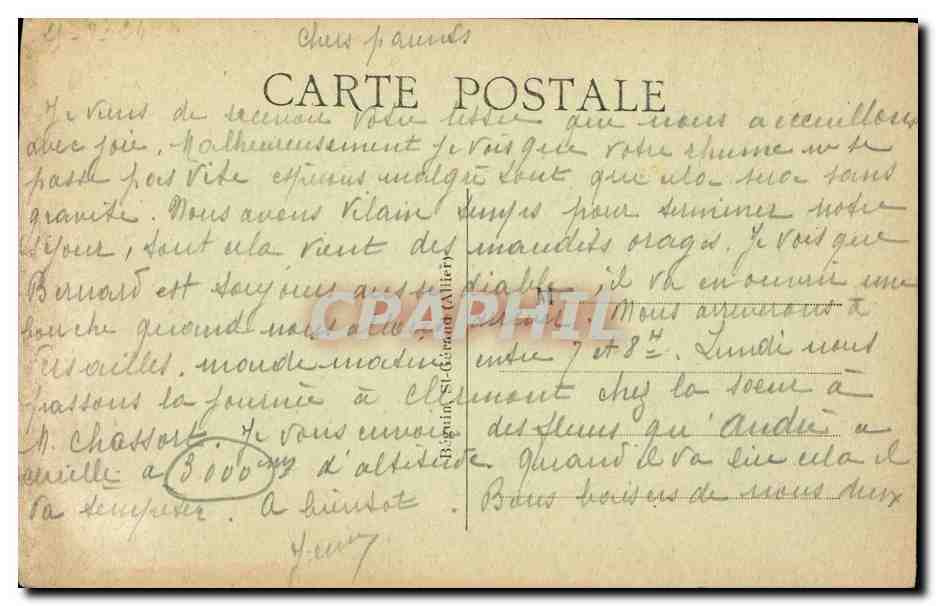 Chers parents
CARTE POSTALE
Je viens de recevoir votre lettre que nous accueillons
avec joie. Malheureusement je vois que votre rhume ne se
passe pas vite espérons malgré tout que cela sera sans
gravité. Nous avons vilain temps pour terminer notre
séjour, tout cela vient des maudits orages. Je vois que
Bernard est toujours aussi diable, il va en ouvrir une
bouche quand nous allons arriver. Nous arriverons à
Versailles, mardi matin entre 7 et 8 H. Lundi nous
passons la journée à Clermont chez la soeur à
M. Chassort. Je vous envoie des fleurs qu'André a
cueilli à 3000 m d'altitude. Quand il va lire cela il
va tempêter. A bientot. Bons baisers de nous deux
Béguin, St-Gérand (Allier)
M
CPAPHIL